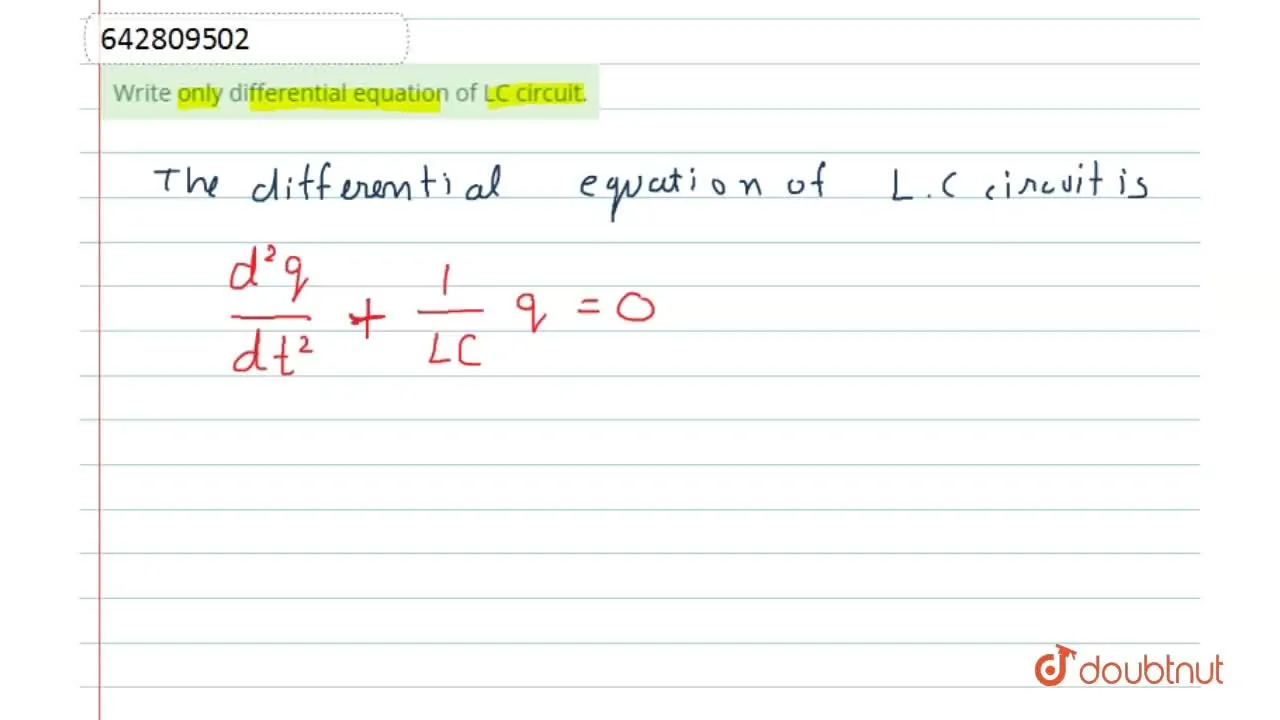 642809502
Write only differential equation of LC circuit.
The differential equation of L.C circuit is
d²q/dt² + 1/LC q = 0
doubtnut